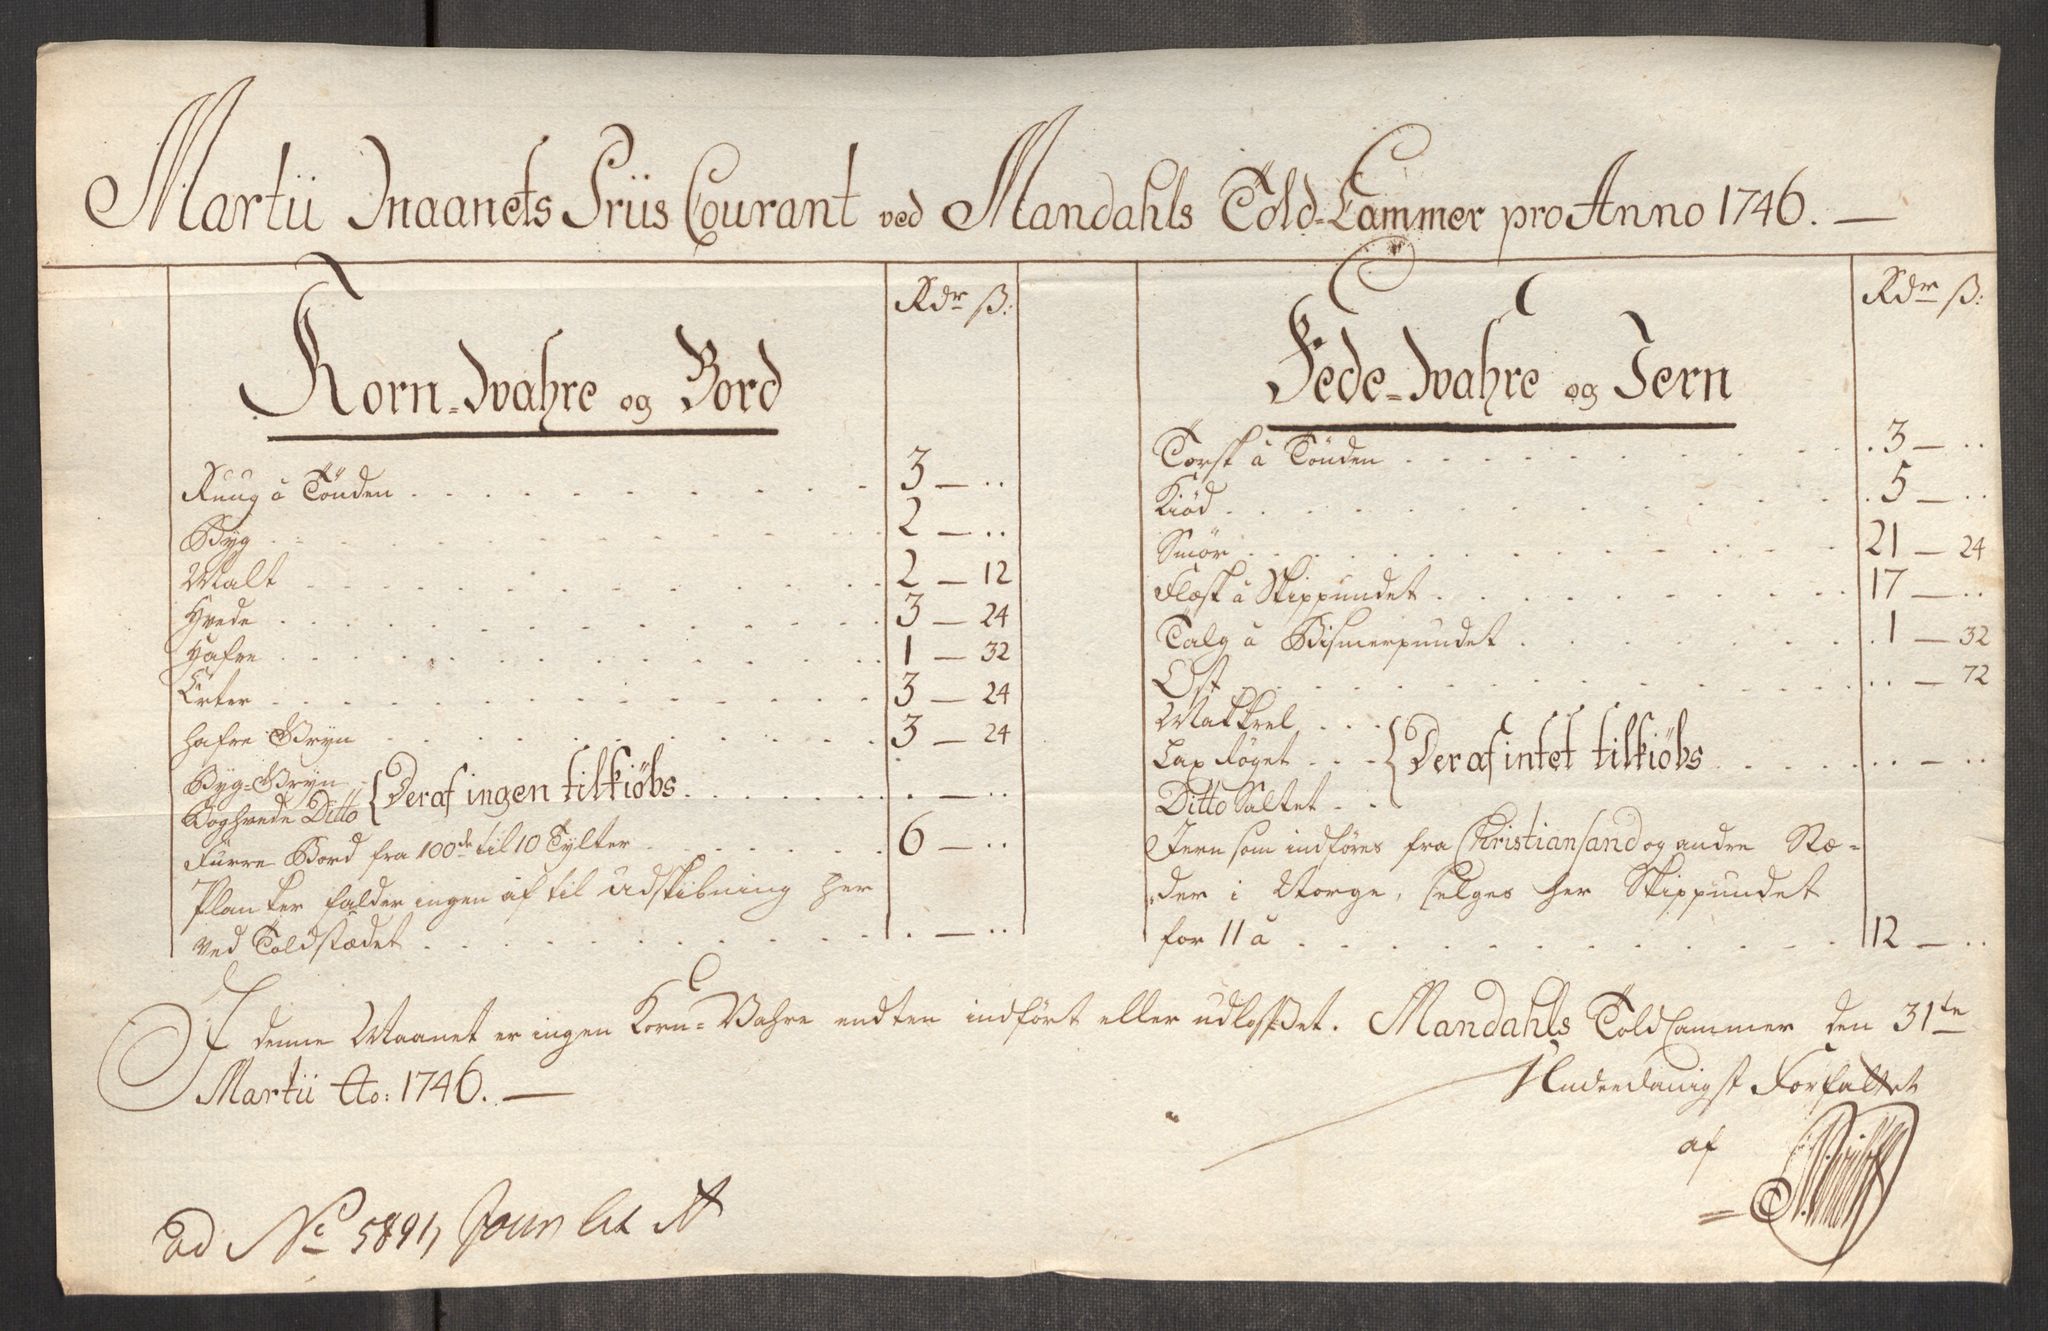 Martii Maanets Priis Courant ved Mandahls Told-Cammer pro Anno 1746. —
Korn-Wahre og Bord
Rdr ß:
Ruug á Tönden 3 — ..
Byg 2 — ..
Malt 2 — 12
Hvede 3 — 24
Hafre 1 — 32
Erter 3 — 24
Hafre Gryn 3 — 24
Byg-Gryn
Boghvede Ditto { Deraf ingen tilkiöbs . — ..
Furre Bord fra 100de til 10 Tylter 6 — ..
Planker falder ingen af til udskibning her
ved Toldstædet . — ..
Fede-Wahre og Jern
Rdr ß:
Torsk á Tönden 3 — ..
Kiød 5 — ..
Smör 21 — 24
Flæsk á Skippundet 17 — ..
Talg á Bismerpundet 1 — 32
Ost .. — 72
Makkrel
Lax Røget { Deraf intet tilkiöbs .. — ..
Ditto Saltet
Jern som indföres fra Christiansand og andre Stæ-
der i Norge, selges her Skippundet
for 11 á 12 — ..
I denne Maanet er ingen Korn-Vahre endten indfört eller udlosset. Mandahls Told Cammer den 31te
Martii Ao: 1746. —
Underdanigst Forfattet
af
ad No 5891 Jour Lit A